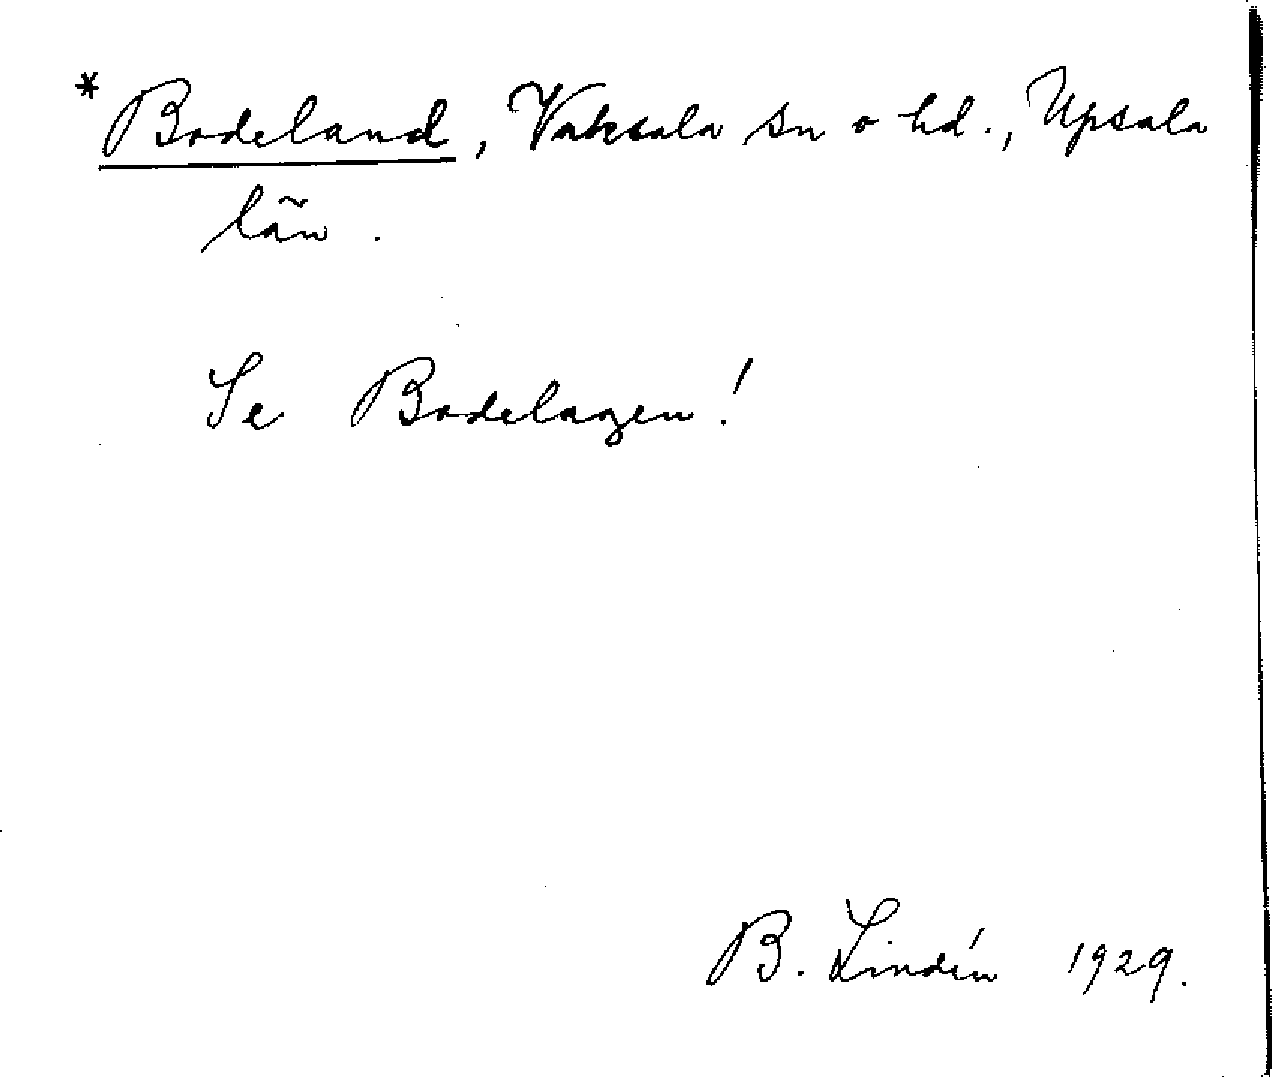 * Bodeland, Vaksala sn o hd., Upsala
län.
Se Bodelagen!
B. Lindén 1929.